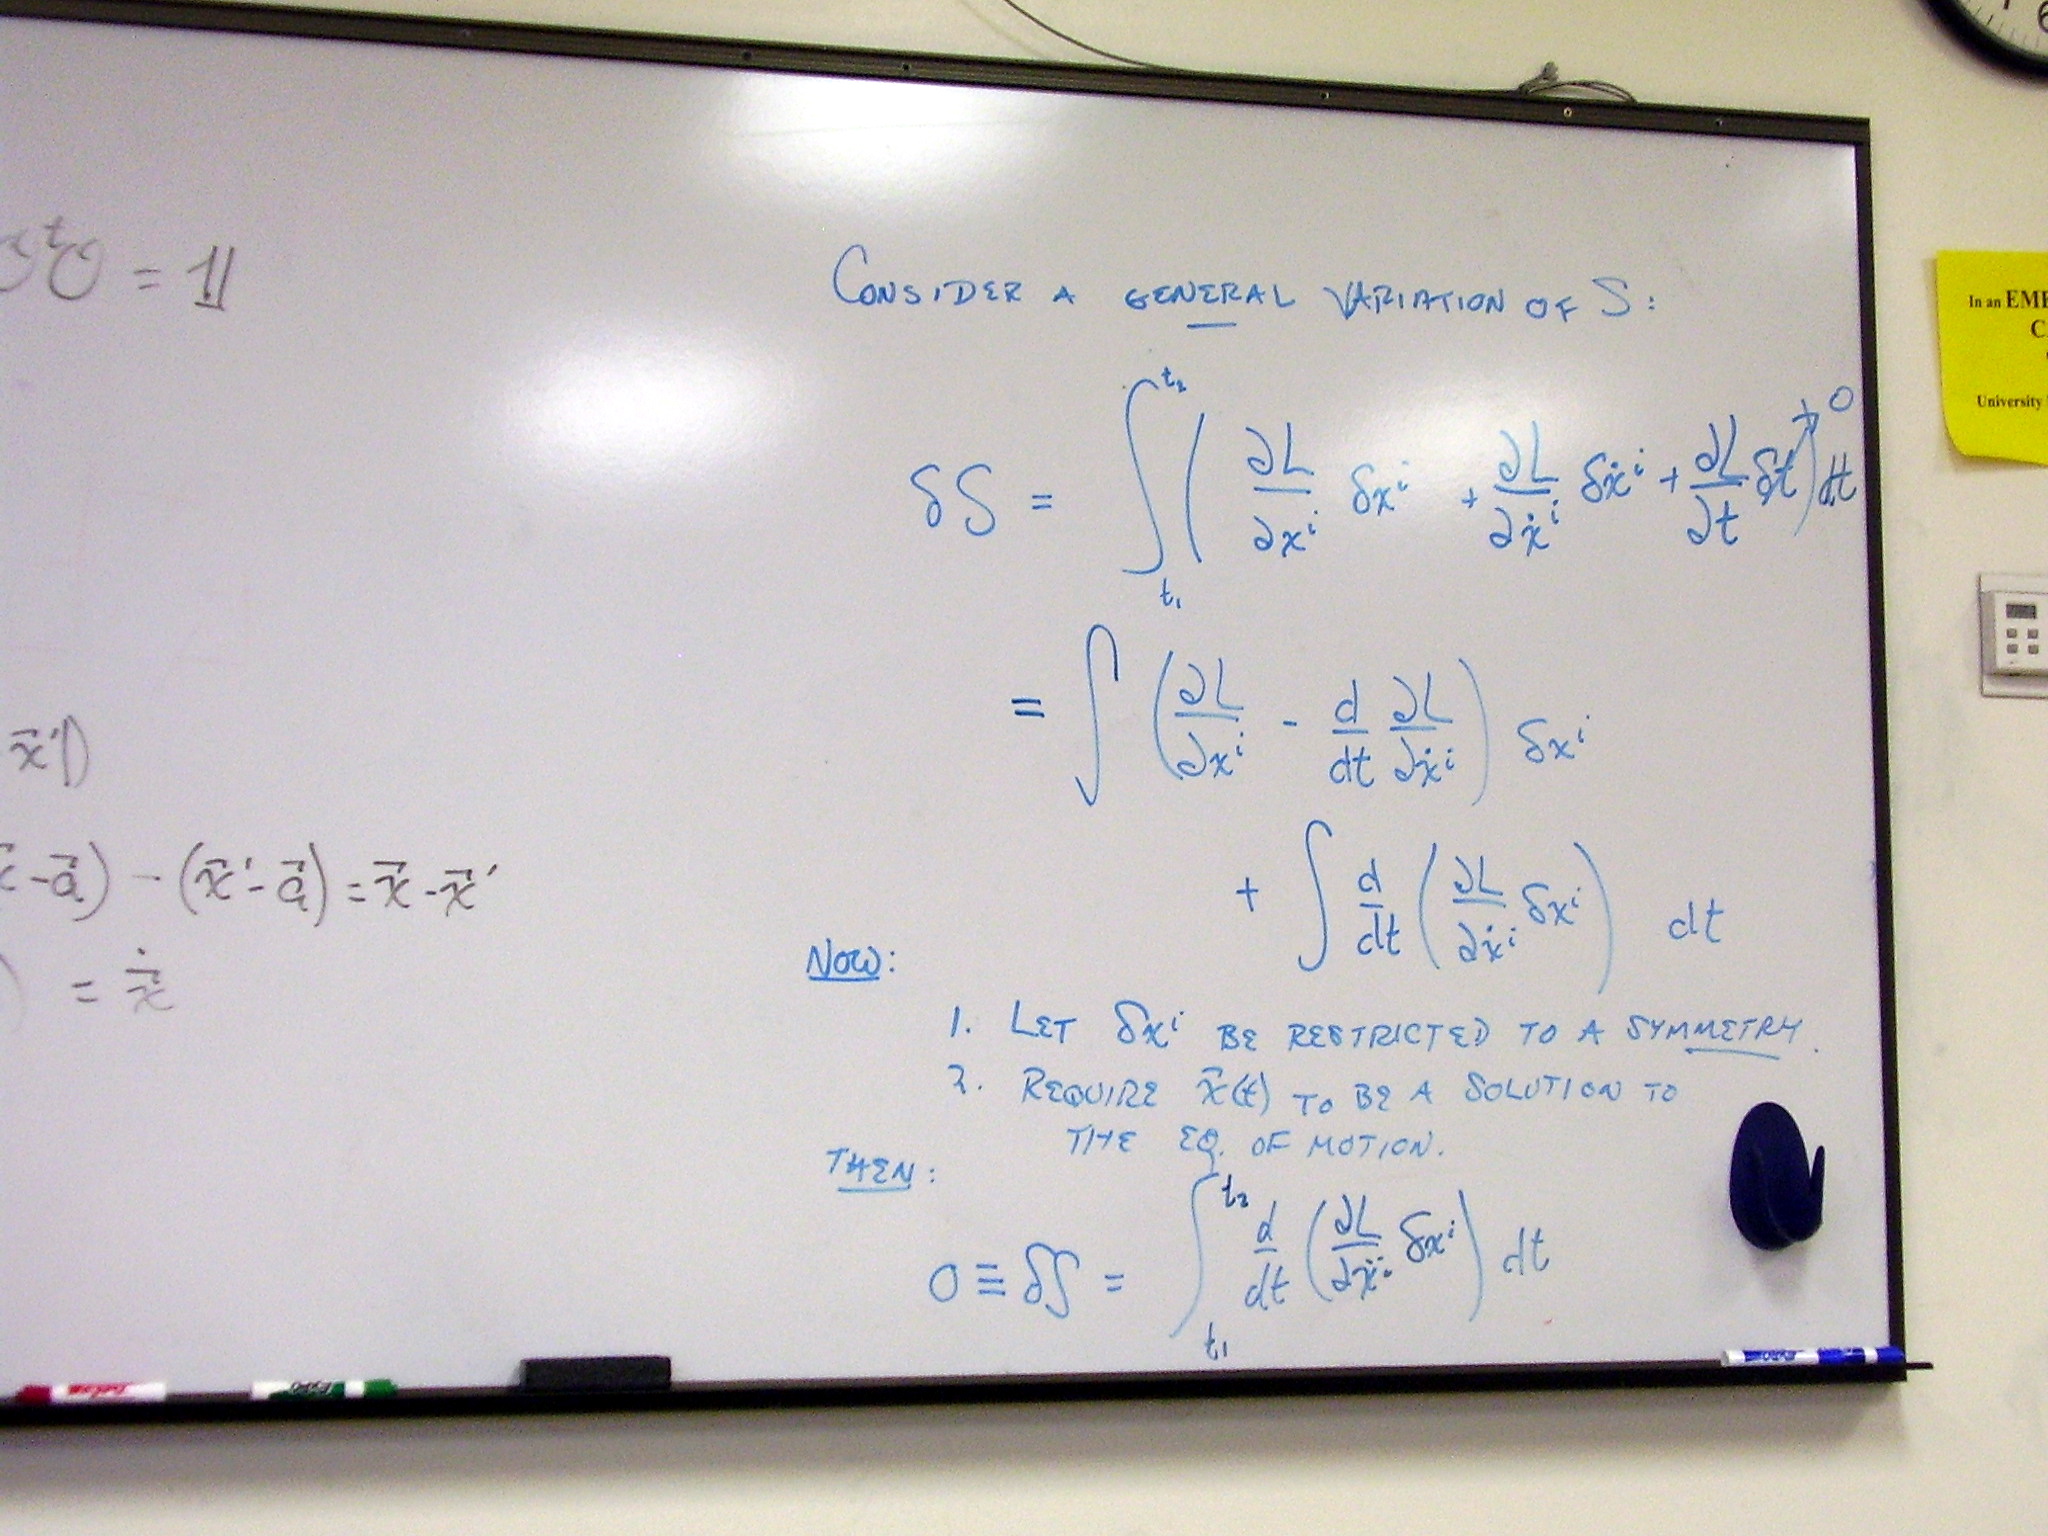 𝒪ᵗ𝒪 = 𝟙
x⃗′|)
x⃗ - a⃗) - (x⃗′ - a⃗) = x⃗ - x⃗′
) = ẋ⃗
CONSIDER A GENERAL VARIATION OF S:
δS = ∫_{t₁}^{t₂} ( ∂L/∂xⁱ δxⁱ + ∂L/∂ẋⁱ δẋⁱ + ∂L/∂t δt → 0 ) dt
= ∫ ( ∂L/∂xⁱ - d/dt ∂L/∂ẋⁱ ) δxⁱ
+ ∫ d/dt ( ∂L/∂ẋⁱ δxⁱ ) dt
NOW:
1. LET δxⁱ BE RESTRICTED TO A SYMMETRY.
2. REQUIRE x⃗(t) TO BE A SOLUTION TO
THE EQ. OF MOTION.
THEN:
0 ≡ δS = ∫_{t₁}^{t₂} d/dt ( ∂L/∂ẋⁱ δxⁱ ) dt
In an EME
C
University
EXPO
6